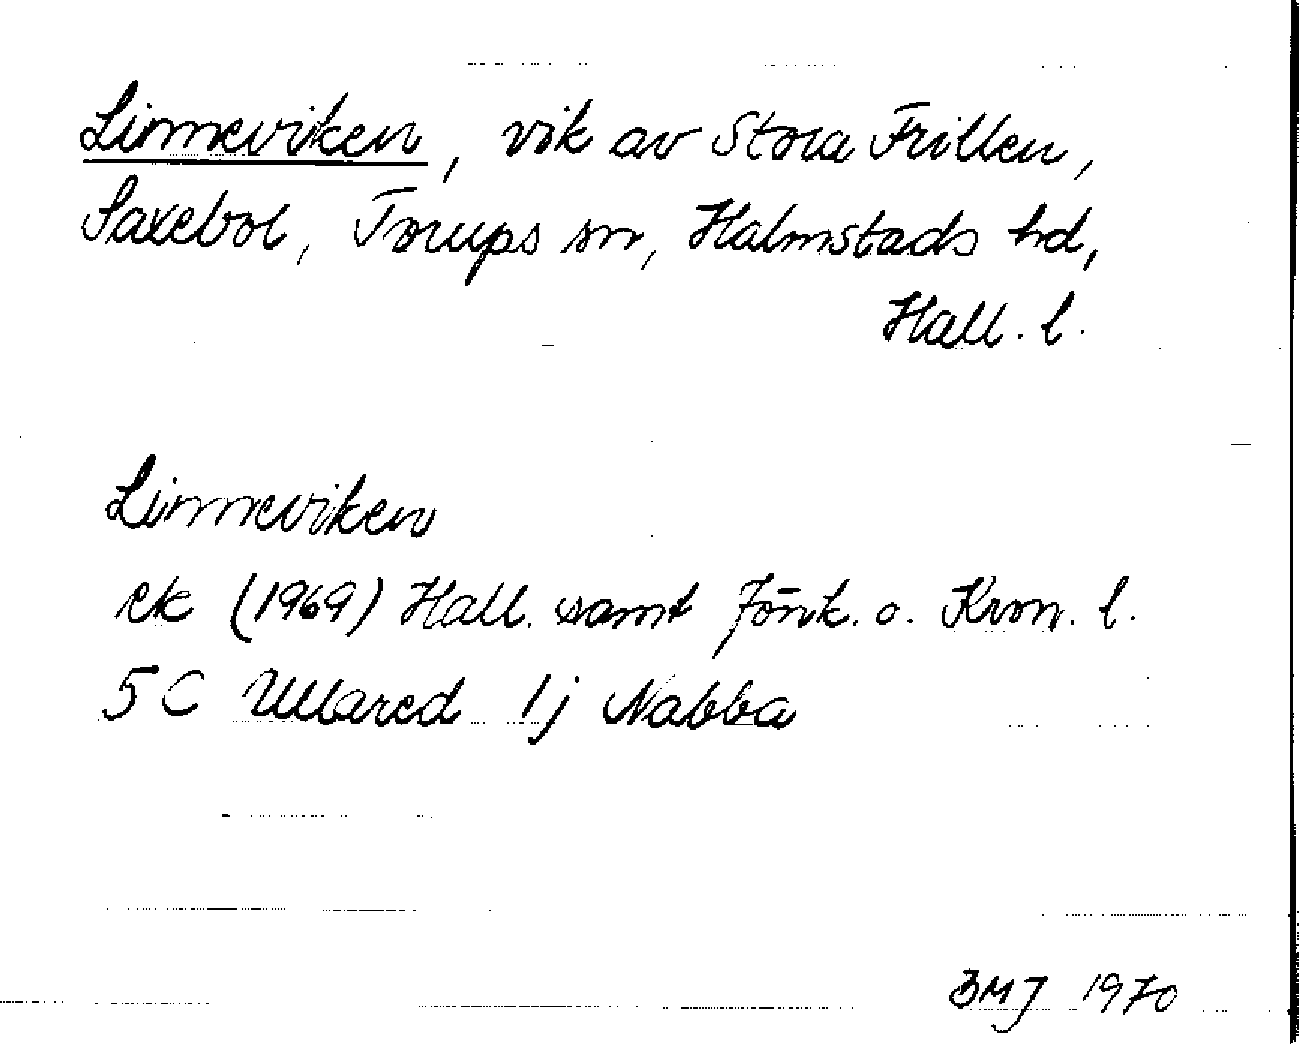 Linneviken, vik av Stora Frillen,
Saxebol, Torups sn, Halmstads hd,
Hall. l.
Linneviken
ek (1969) Hall. samt Jönk. o. Kron. l.
5 C Ullared 1j Nabba
BMJ 1970